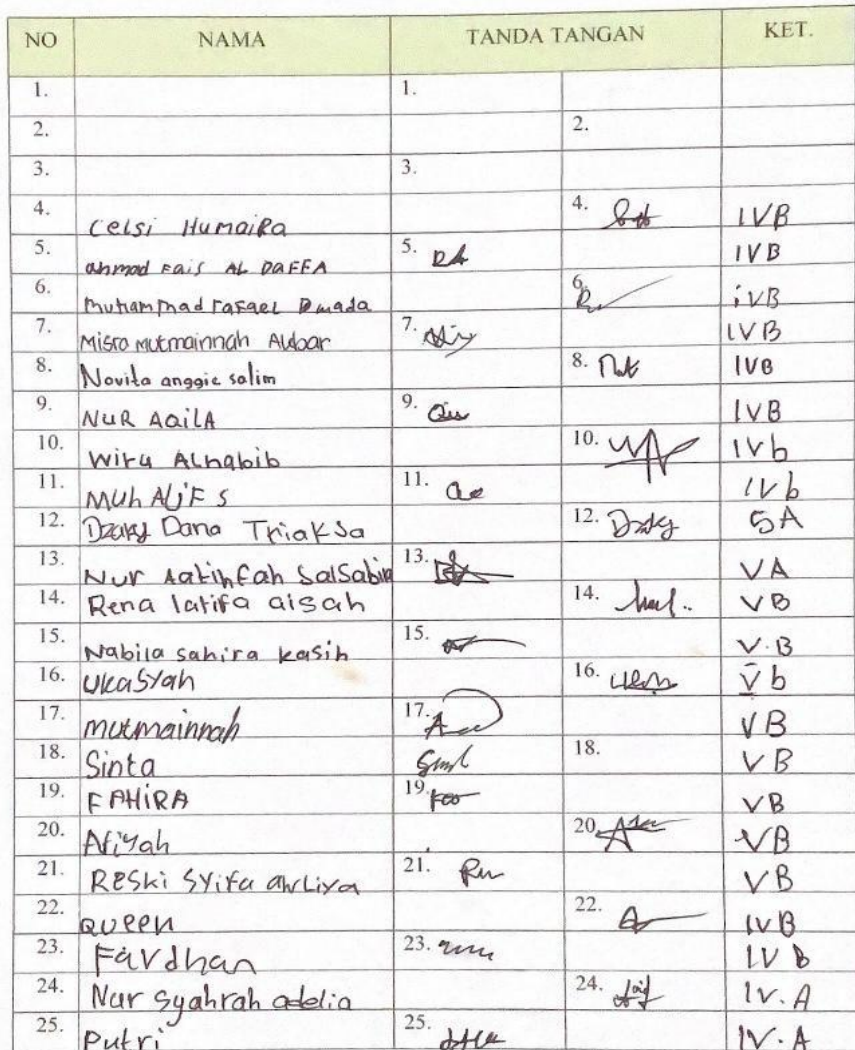 NO NAMA TANDA TANGAN KET.
1. 1.
2. 2.
3. 3.
4. Celsi HumaiRa 4. IVB
5. ahmad Fais AL DaFFA 5. IVB
6. muhammad rafael 6. iVB
7. Misra mutmainnah 7. IVB
8. Novita anggie salim 8. IVB
9. NUR AQilA 9. IVB
10. Wiru ALhabib 10. IVb
11. MUh ALiF S 11. IVb
12. Dzaky Dana Triaksa 12. Dzaky 5A
13. Nur SalSabila 13. VA
14. Rena latifa aisah 14. VB
15. Nabila sahira kasih 15. V.B
16. UkaSyah 16. Vb
17. mutmainnah 17. VB
18. Sinta 18. VB
19. FAHiRA 19. VB
20. Afiyah 20. VB
21. RESki SYifa awLiya 21. VB
22. QUEEN 22. IVB
23. Fardhan 23. IV b
24. Nur Syahrah adelia 24. IV.A
25. Putri 25. IV.A